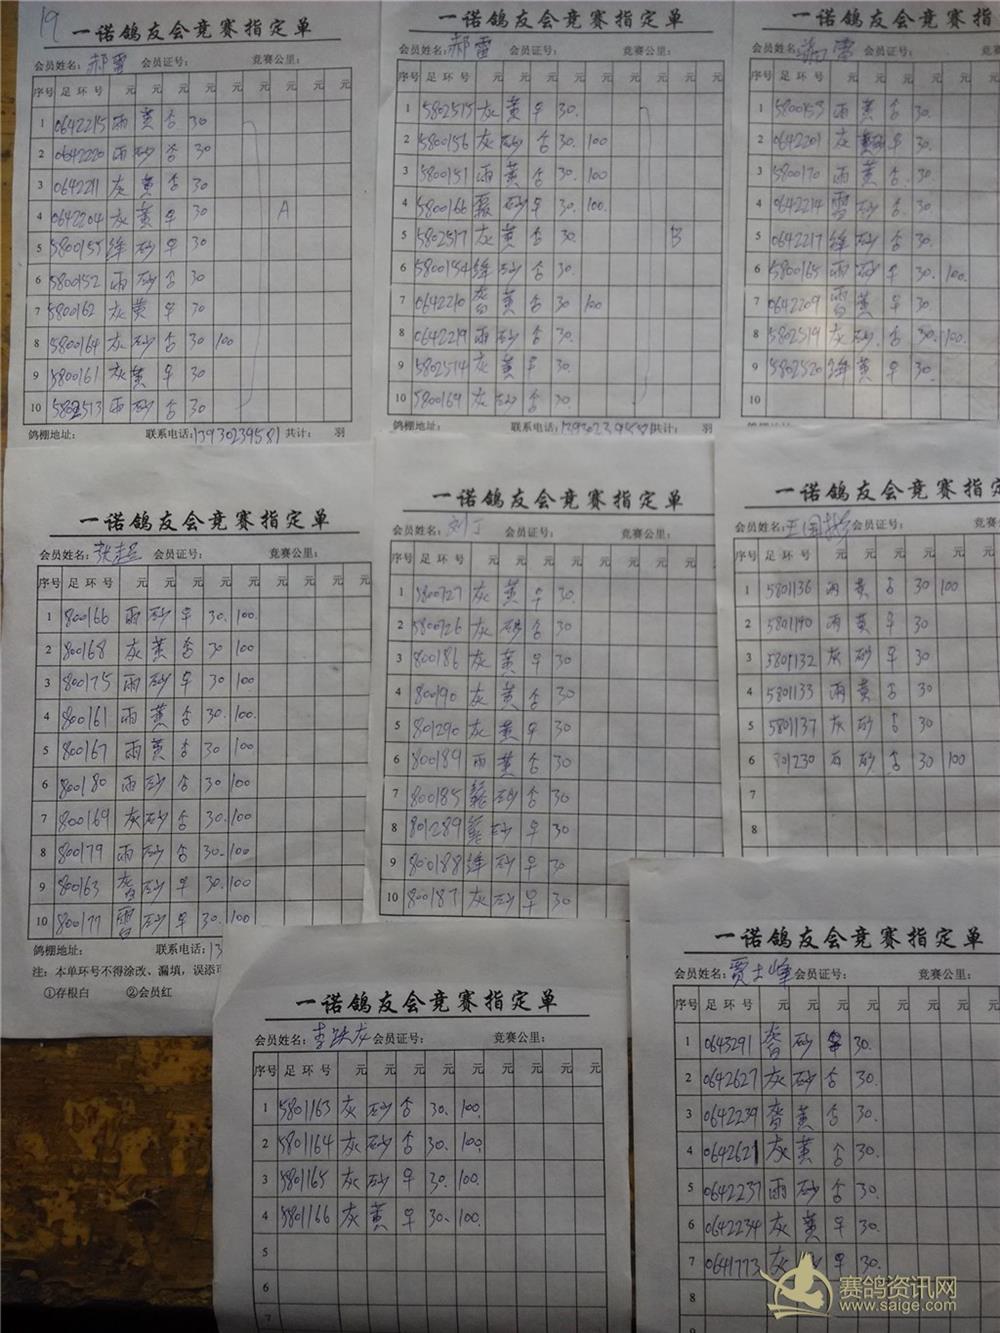 19
一诺鸽友会竞赛指定单
会员姓名：郝雷 会员证号： 竞赛公里：
序号 足环号 元 元 元 元 元 元 元 元 元
1 0642215 雨 黄 否 30
2 0642220 雨 砂 否 30
3 0642211 灰 黄 否 30
4 0642204 灰 黄 早 30 A
5 5800155 绛 砂 早 30
6 5800152 雨 砂 否 30
7 5800162 灰 黄 早 30
8 5800164 灰 砂 否 30 100
9 5800161 灰 黄 早 30
10 5802513 雨 砂 否 30
鸽棚地址： 联系电话：13930239581 共计： 羽
一诺鸽友会竞赛指定单
会员姓名：郝雷 会员证号： 竞赛公里：
序号 足环号 元 元 元 元 元 元 元 元 元
1 5802515 灰 黄 早 30.
2 5800156 灰 砂 否 30. 100
3 5800151 雨 黄 否 30. 100
4 5800166 砂 早 30. 100.
5 5802517 灰 黄 否 30. B
6 5800154 绛 砂 否 30.
7 0642210 黄 否 30 100
8 0642219 雨 砂 否 30.
9 5802514 灰 黄 早 30.
10 5800169 灰 砂 否 30.
鸽棚地址： 联系电话：13930239581 共计： 羽
一诺鸽友会竞赛指
会员姓名：郝雷 会员证号：
序号 足环号 元 元 元 元 元 元
1 5800153 雨 黄 否 30.
2 0642201 灰 早 30.
3 5800170 雨 黄 否 30.
4 0642214 雪 砂 否 30.
5 0642217 绛 砂 早 30.
6 5800165 雨 砂 早 30. 100.
7 0642209 雪 黄 早 30.
8 5802519 灰 砂 否 30. 100.
9 5802520 绛 黄 早 30.
10
鸽棚地址：
一诺鸽友会竞赛指定单
会员姓名：张超 会员证号： 竞赛公里：
序号 足环号 元 元 元 元 元 元 元 元 元
1 800166 雨 砂 早 30. 100.
2 800168 灰 黄 否 30 100
3 800175 雨 砂 早 30. 100
4 800161 雨 黄 否 30. 100.
5 800167 雨 黄 否 30 100
6 800180 雨 砂 否 30 100
7 800169 灰 砂 否 30. 100
8 800179 雨 砂 否 30. 100
9 800163 砂 早 30. 100
10 800177 雪 砂 早 30. 100
鸽棚地址： 联系电话：13
注：本单环号不得涂改、漏填，误添
①存根白 ②会员红
一诺鸽友会竞赛指定单
会员姓名：刘丁 会员证号： 竞赛公里：
序号 足环号 元 元 元 元 元 元 元 元
1 5800727 灰 黄 早 30.
2 5800726 灰 砂 否 30
3 800186 灰 黄 早 30
4 800190 灰 黄 否 30
5 801290 灰 黄 早 30
6 800189 雨 黄 否 30
7 800185 砂 否 30
8 801289 砂 早 30
9 800188 绛 砂 早 30
10 800187 灰 砂 早 30
一诺鸽友会竞赛指定
会员姓名：王国 会员证号： 竞
序号 足环号 元 元 元 元 元 元 元
1 5801136 雨 黄 否 30 100
2 5801140 雨 黄 早 30
3 5801132 灰 砂 早 30
4 5801133 雨 黄 否 30
5 5801137 灰 砂 否 30
6 801230 石 砂 否 30 100
7
8
一诺鸽友会竞赛指定单
会员姓名：李跃龙 会员证号： 竞赛公里：
序号 足环号 元 元 元 元 元 元 元 元 元
1 5801163 灰 砂 否 30. 100.
2 5801164 灰 砂 否 30. 100.
3 5801165 灰 砂 早 30. 100.
4 5801166 灰 黄 早 30. 100.
5
6
7
一诺鸽友会竞赛指定单
会员姓名：贾士峰 会员证号： 竞赛公里：
序号 足环号 元 元 元 元 元 元 元 元
1 0643291 砂 早 30.
2 0642627 灰 砂 否 30.
3 0642239 黄 否 30.
4 0642621 灰 黄 否 30.
5 0642237 雨 砂 否 30.
6 0642234 灰 黄 早 30.
7 0641773 灰 砂 早 30.
8
赛鸽资讯网
www.saige.com